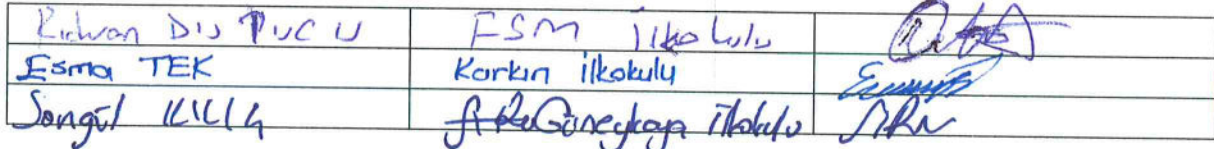 Rıdvan DİJPUCU FSM ilkokulu
Esma TEK Karkın ilkokulu
Songül KILIÇ Güneykaya ilkokulu